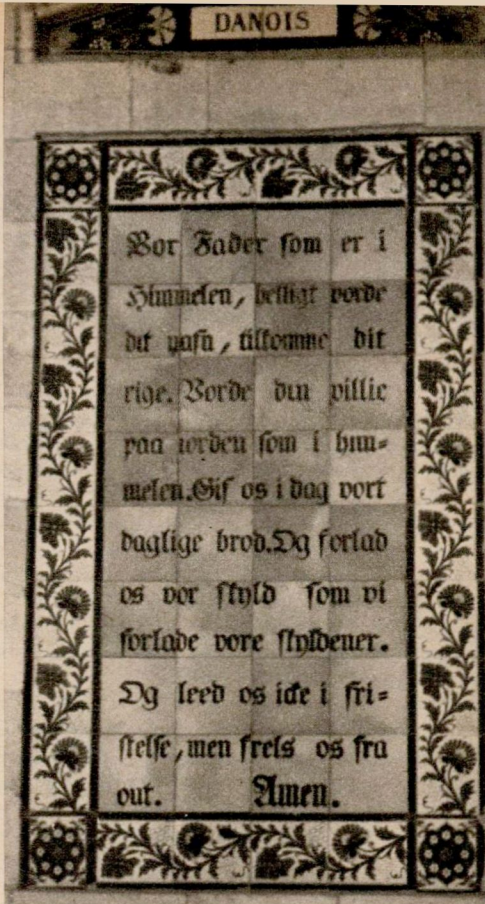 DANOIS
Vor Fader som er i
Himmelen, helligt vorde
dit nafn, tilkomme dit
rige. Vorde din villie
paa iorden som i him=
melen. Gif os i dag vort
daglige brod. Og forlad
os vor skyld som vi
forlade vore skyldener.
Og leed os icke i fri=
stelse, men frels os fra
out. Amen.